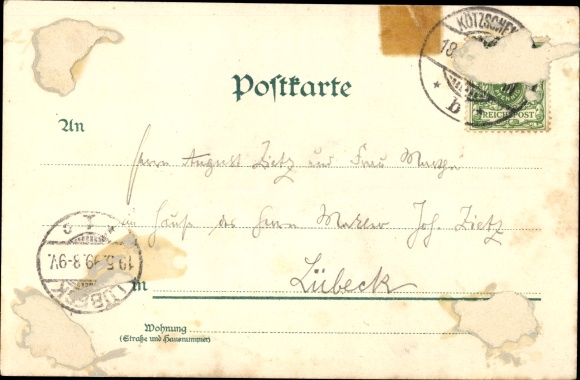 KÖTZSCHEN
18.
b
REICHSPOST
Postkarte
An
Herrn August Zietz und Frau
im Hause des Herrn Makler Joh. Zietz
Lübeck
in
LÜBECK
19.5.99.8-9V.
1
Wohnung
(Straße und Hausnummer)